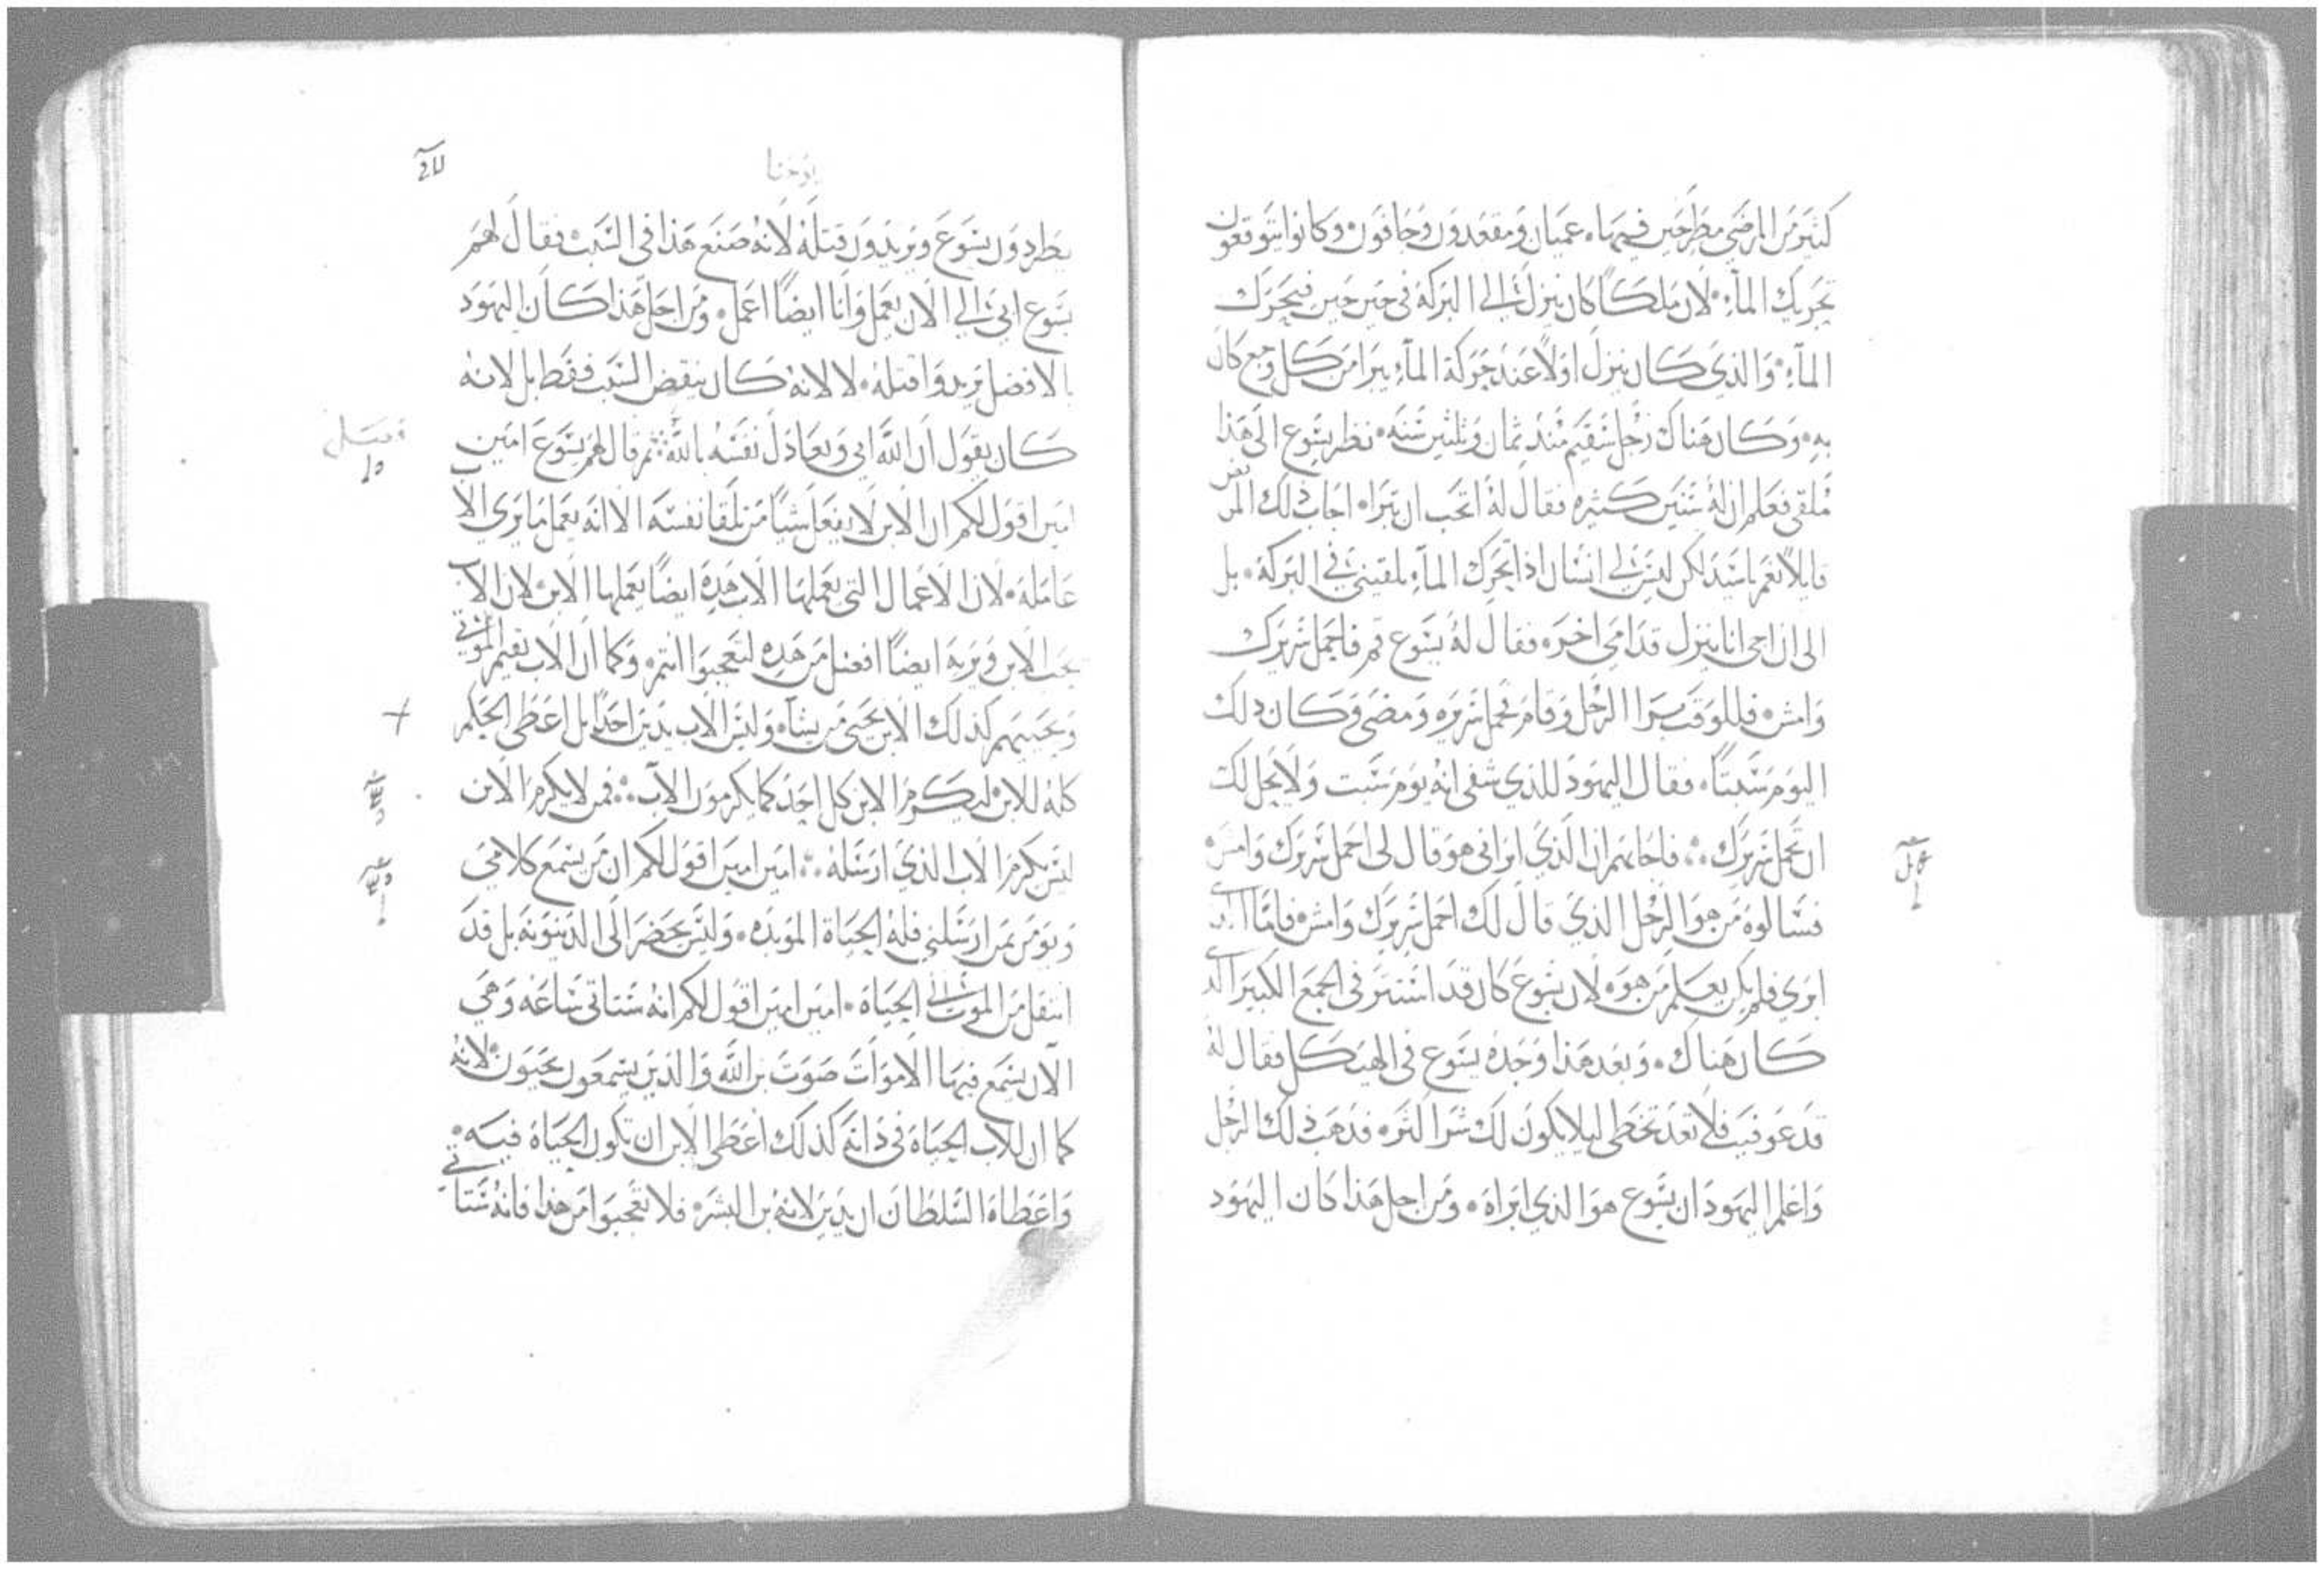 كثير من المرضى مطرحين فيها، عميان ومقعدون وجافون وكانوا يتوقعون
تحريك المآء، لان ملكاً كان ينزل الى البركة في حين حين فيحرك
المآء، والذي كان ينزل اولاً عند حركة المآء يبرا من كل وجع كان
به، وكان هناك رجل سقيم منذ ثمان وثلثين سنه، نظر يسوع الى هذا
ملقى فعلم ان له سنين كثيره فقال له اتحب ان تبرا، اجاب ذلك المريض
قايلاً نعم ياسيد لكن ليس لي انسان اذا تحرك المآء يلقيني في البركة، بل
الى ان اجى انا ينزل قدامي اخر، فقال له يسوع قم فاحمل سريرك
وامش، فللوقت برا الرجل وقام فحمل سريره ومضى وكان ذلك
اليوم سبتاً، فقال اليهود للذي شفى انه يوم سبت ولا يحل لك
ان تحمل سريرك، فاجابهم ان الذي ابراني هو قال لي احمل سريرك وامش
فسالوه من هو الرجل الذي قال لك احمل سريرك وامش فاما الذي
ابري فلم يكن يعلم من هو، لان يسوع كان قد استتر في الجمع الكبير الذي
كان هناك، وبعد هذا وجده يسوع في الهيكل فقال له
قد عوفيت فلا تعد تخطى ليلا يكون لك شراً اكثر، فذهب ذلك الرجل
واعلم اليهود ان يسوع هو الذي ابراه، ومن اجل هذا كان اليهود
يوحنا
يطردون يسوع ويريدون قتله لانه صنع هذا في السبت فقال لهم
يسوع ابي الى الان يعمل وانا ايضاً اعمل، ومن اجل هذا كان اليهود
بالافضل يريدوا قتله، لا لانه كان ينقض السبت فقط بل لانه
كان يقول ان الله ابي ويعادل نفسه بالله، ثم قال لهم يسوع امين
امين اقول لكم ان الابن لا يفعل شياً من تلقا نفسه الا انه يعمل ما يرى الاب
عامله، لان الاعمال التي يعملها الاب هذه ايضاً يعملها الابن لان الاب
يحب الابن ويريه ايضاً افضل من هذه لتعجبوا انتم، وكما ان الاب يقيم الموتى
ويحييهم كذلك الابن يحيي من يشآء وليس الاب يدين احداً بل اعطى الحكم
كله للابن ليكرم الابن كل احد كما يكرمون الآب، فمن لا يكرم الابن
ليس يكرم الاب الذي ارسله، امين امين اقول لكم ان من يسمع كلامي
ويومن بمن ارسلني فله الحياة الموبده، وليس يحضر الى الدينونه بل قد
انتقل من الموت الى الحياة، امين امين اقول لكم انه ستاتي ساعه وهي
الآن يسمع فيها الاموات صوت بن الله والذين يسمعون يحيون لانه
كما ان للاب الحياة في ذاته كذلك اعطى الابن ان تكون الحياة فيه،
واعطاه السلطان ان يدين لانه بن البشر، فلا تعجبوا من هذا فانه ستاتي